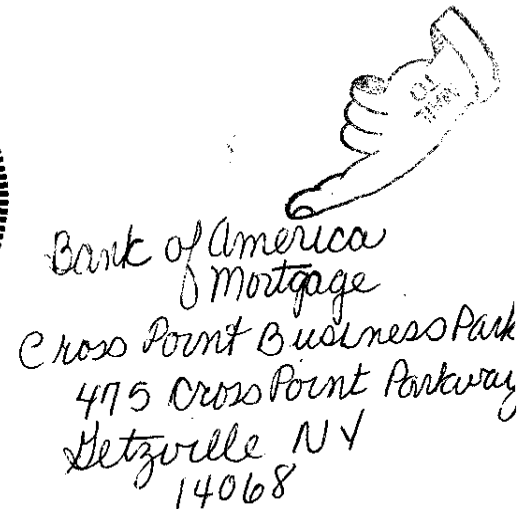 MAIL
TO
Bank of America
Mortgage
Cross Point Business Park
475 Cross Point Parkway
Getzville NY
14068